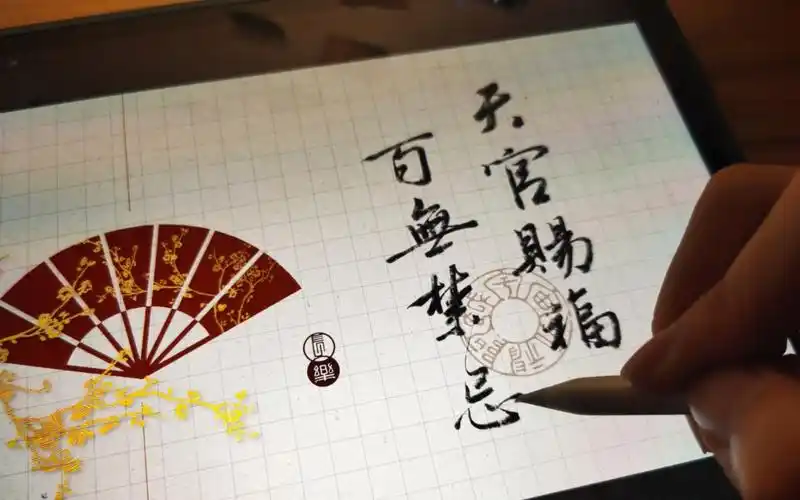 天官賜福
百無禁忌
長樂